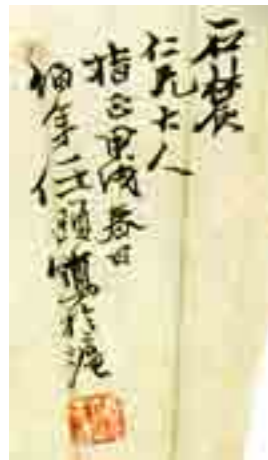 石農
仁兄大人
指正甲戌春日
伯年任頤寫於滬